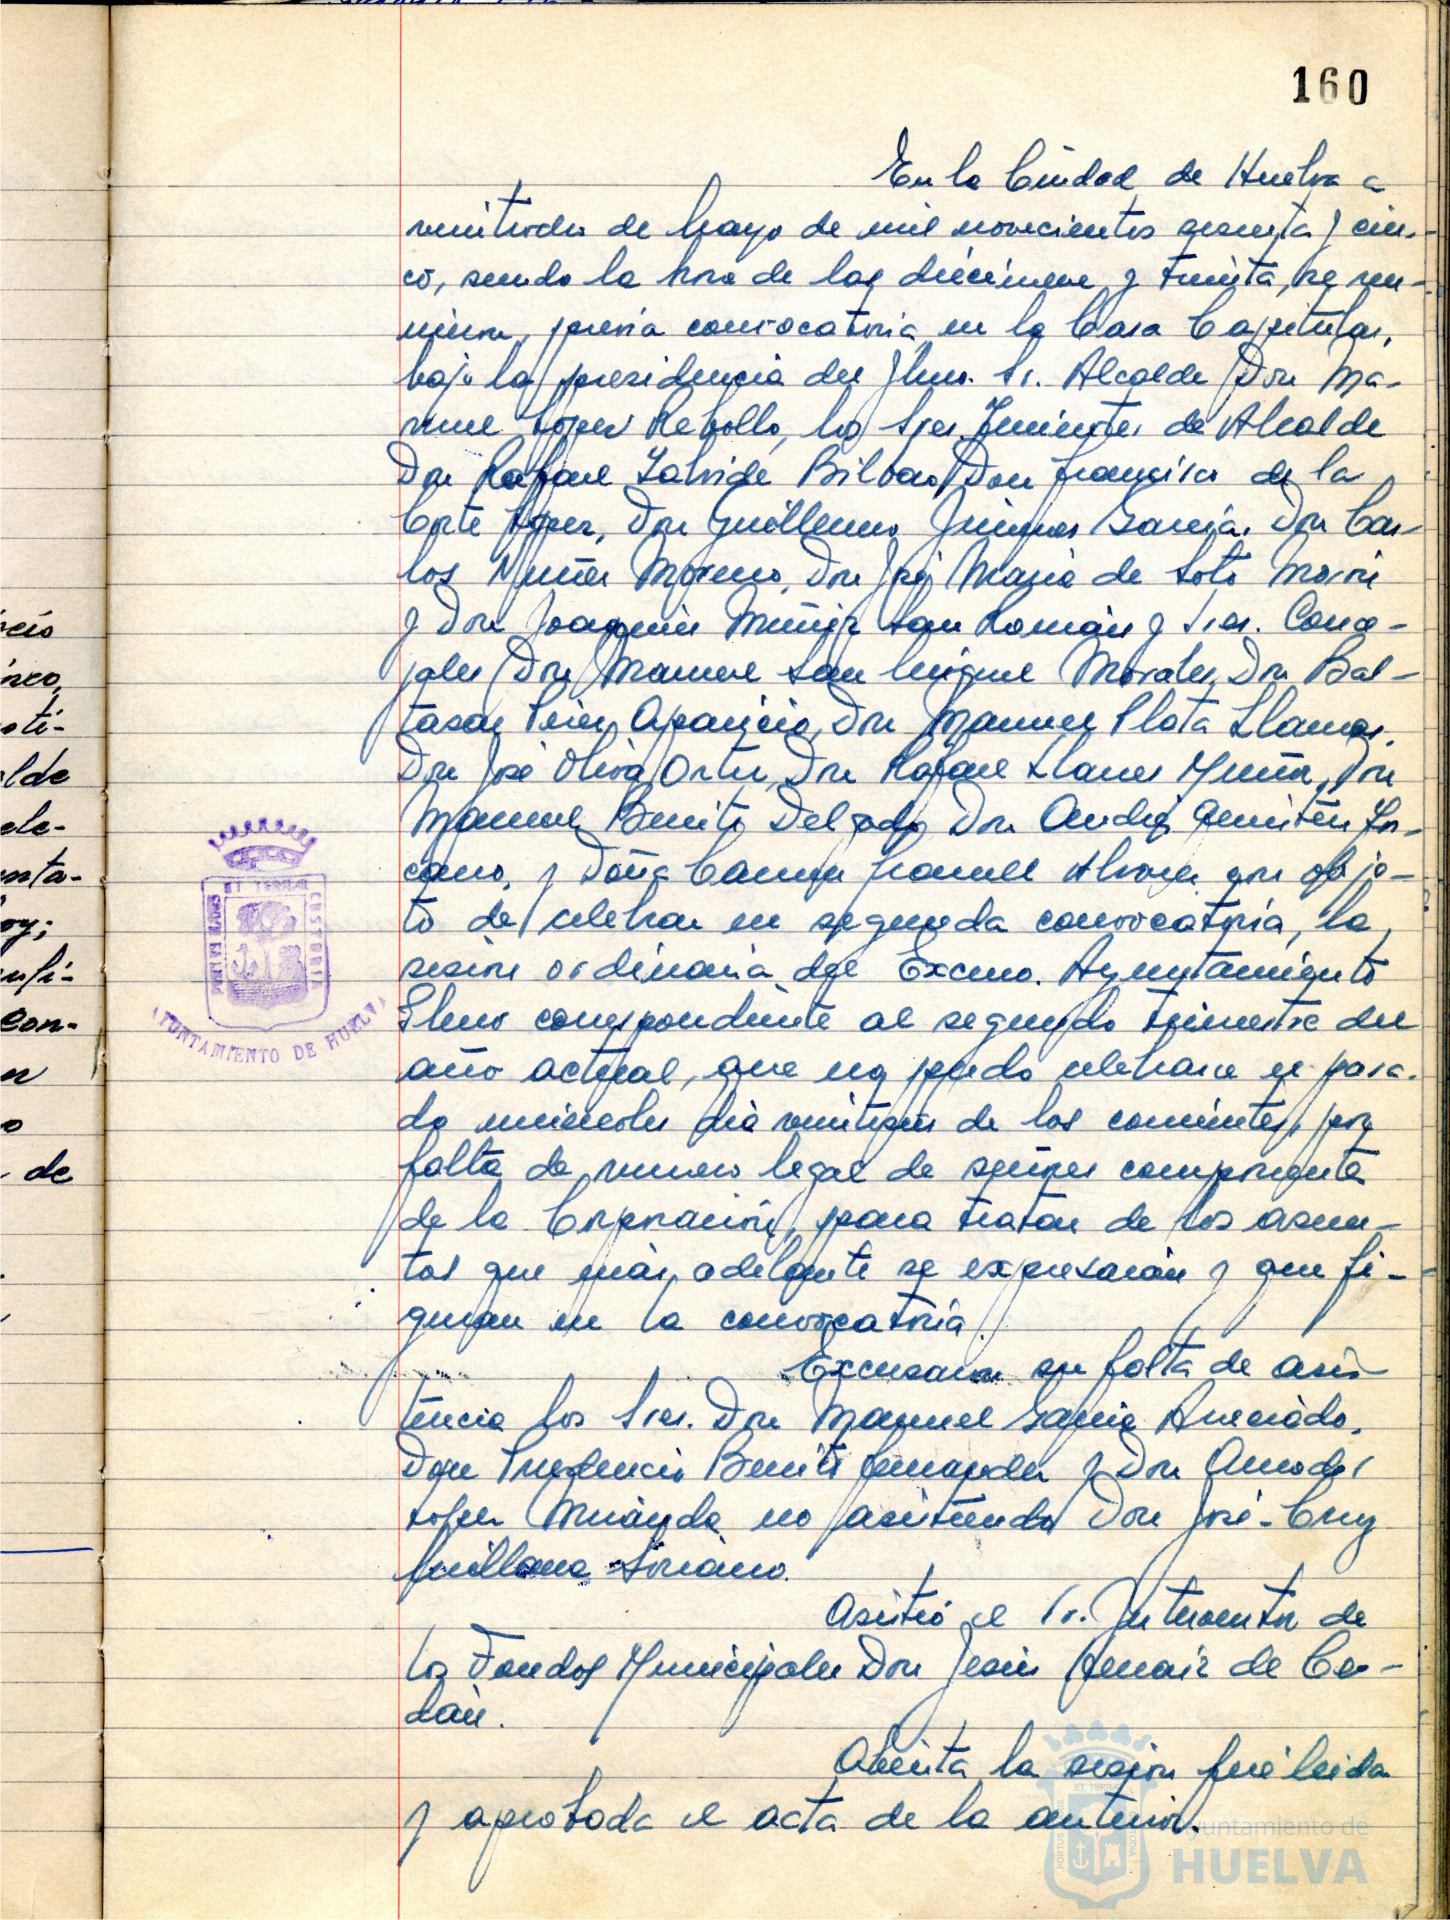 160
En la Ciudad de Huelva a
veintiocho de Mayo de mil novecientos sesenta y cin-
co, siendo la hora de las diecinueve y treinta, se reu-
nieron, previa convocatoria, en la Casa Capitular,
bajo la presidencia del Iltmo. Sr. Alcalde Don Ma-
nuel López Rebollo, los Sres. Tenientes de Alcalde
Don Rafael Bilbao, Don Francisco de la
Corte López, Don Guillermo Jiménez García, Don Car-
los Núñez Moreno, Don José María de Soto Morón
y Don Joaquín Muñiz San Román y Sres. Conce-
jales Don Manuel San Miguel Morales, Don Bal-
tasar Pérez Aparicio, Don Manuel Plata Llamas,
Don José Oliva Orta, Don Rafael Llanes Núñez, Don
Manuel Benito Delgado, Don Andrés
y Doña Carmen con obje-
to de celebrar en segunda convocatoria, la
sesión ordinaria del Excmo. Ayuntamiento
Pleno correspondiente al segundo trimestre del
año actual, que no pudo celebrarse el pasa-
do miércoles día veintiseis de los corrientes, por
falta de número legal de señores componentes
de la Corporación, para tratar de los asun-
tos que más adelante se expresarán y que fi-
guran en la convocatoria.
Excusaron su falta de asis-
tencia los Sres. Don Manuel García
Don Prudencio Benito Fernández y Don Amador
López Miranda no asistiendo Don José-Cruz
Soriano.
Asistió el Sr. Interventor de
los Fondos Municipales Don Jesús Arnaiz de
Abierta la sesión fué leida
y aprobada el acta de la anterior.
PORTUS MARIS ET TERRAE CUSTODIA
AYUNTAMIENTO DE HUELVA
Ayuntamiento de
HUELVA